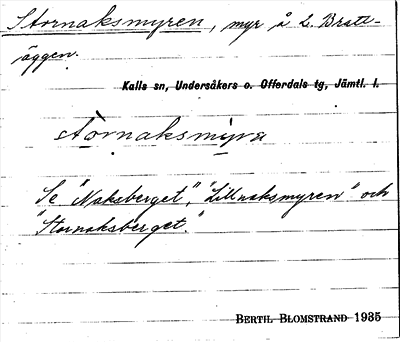 Stornaksmyren, myr å L. Bratt-
äggen.
Kalls sn, Undersåkers o. Offerdals tg, Jämtl. l.
stornaksmyra
Se "Naksberget", "Lillnaksmyren" och
"Stornaksberget."
BERTIL BLOMSTRAND 1935